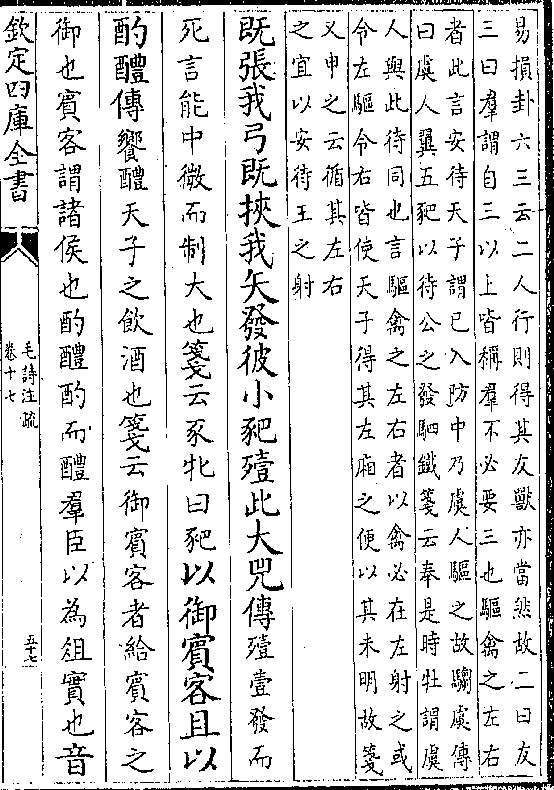 易損卦六三云二人行則得其友獸亦當然故二曰友
三曰羣謂自三以上皆稱羣不必要三也驅禽之左右
者此言安待天子謂已入防中乃虞人驅之故騶虞傳
曰虞人翼五豝以待公之發駟鐵箋云奉是時牡謂虞
人與此待同也言驅禽之左右者以禽必在左射之或
令左驅令右皆使天子得其左廂之便以其未明故箋
又申之云循其左右
之宜以安待王之射
既張我弓既挾我矢發彼小豝殪此大兕傳殪壹發而
死言能中微而制大也箋云豕牝曰豝以御賓客且以
酌醴傳饗醴天子之飲酒也箋云御賓客者給賓客之
御也賓客謂諸侯也酌醴酌而醴羣臣以為俎實也音
欽定四庫全書
毛詩注疏
卷十七
五十七